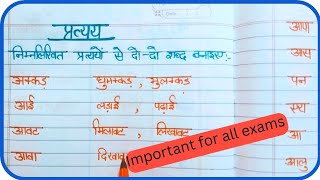 प्रत्यय
निम्नलिखित प्रत्ययों से दो-दो शब्द बनाइए:-
अक्कड़ घुमक्कड़, भुलक्कड़
आई लड़ाई, पढ़ाई
आवट मिलावट, लिखावट
आवा
Important for all exams
आण
आस
पन
स्य
आ
आलु